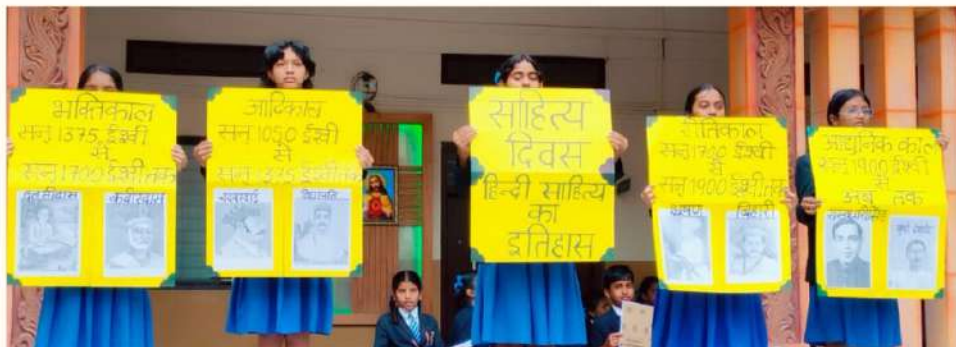 भक्तिकाल
सन् 1375 ईस्वी
से
सन् 1700 ईस्वी तक
तुलसीदास कबीरदास
आदिकाल
सन् 1050 ईस्वी
से
चन्दबरदाई विद्यापति
साहित्य
दिवस
हिन्दी साहित्य
का
इतिहास
रीतिकाल
सन् 1700 ईस्वी
से
सन् 1900 ईस्वी तक
भूषण बिहारी
आधुनिक काल
सन् 1900 ईस्वी
से
अब तक